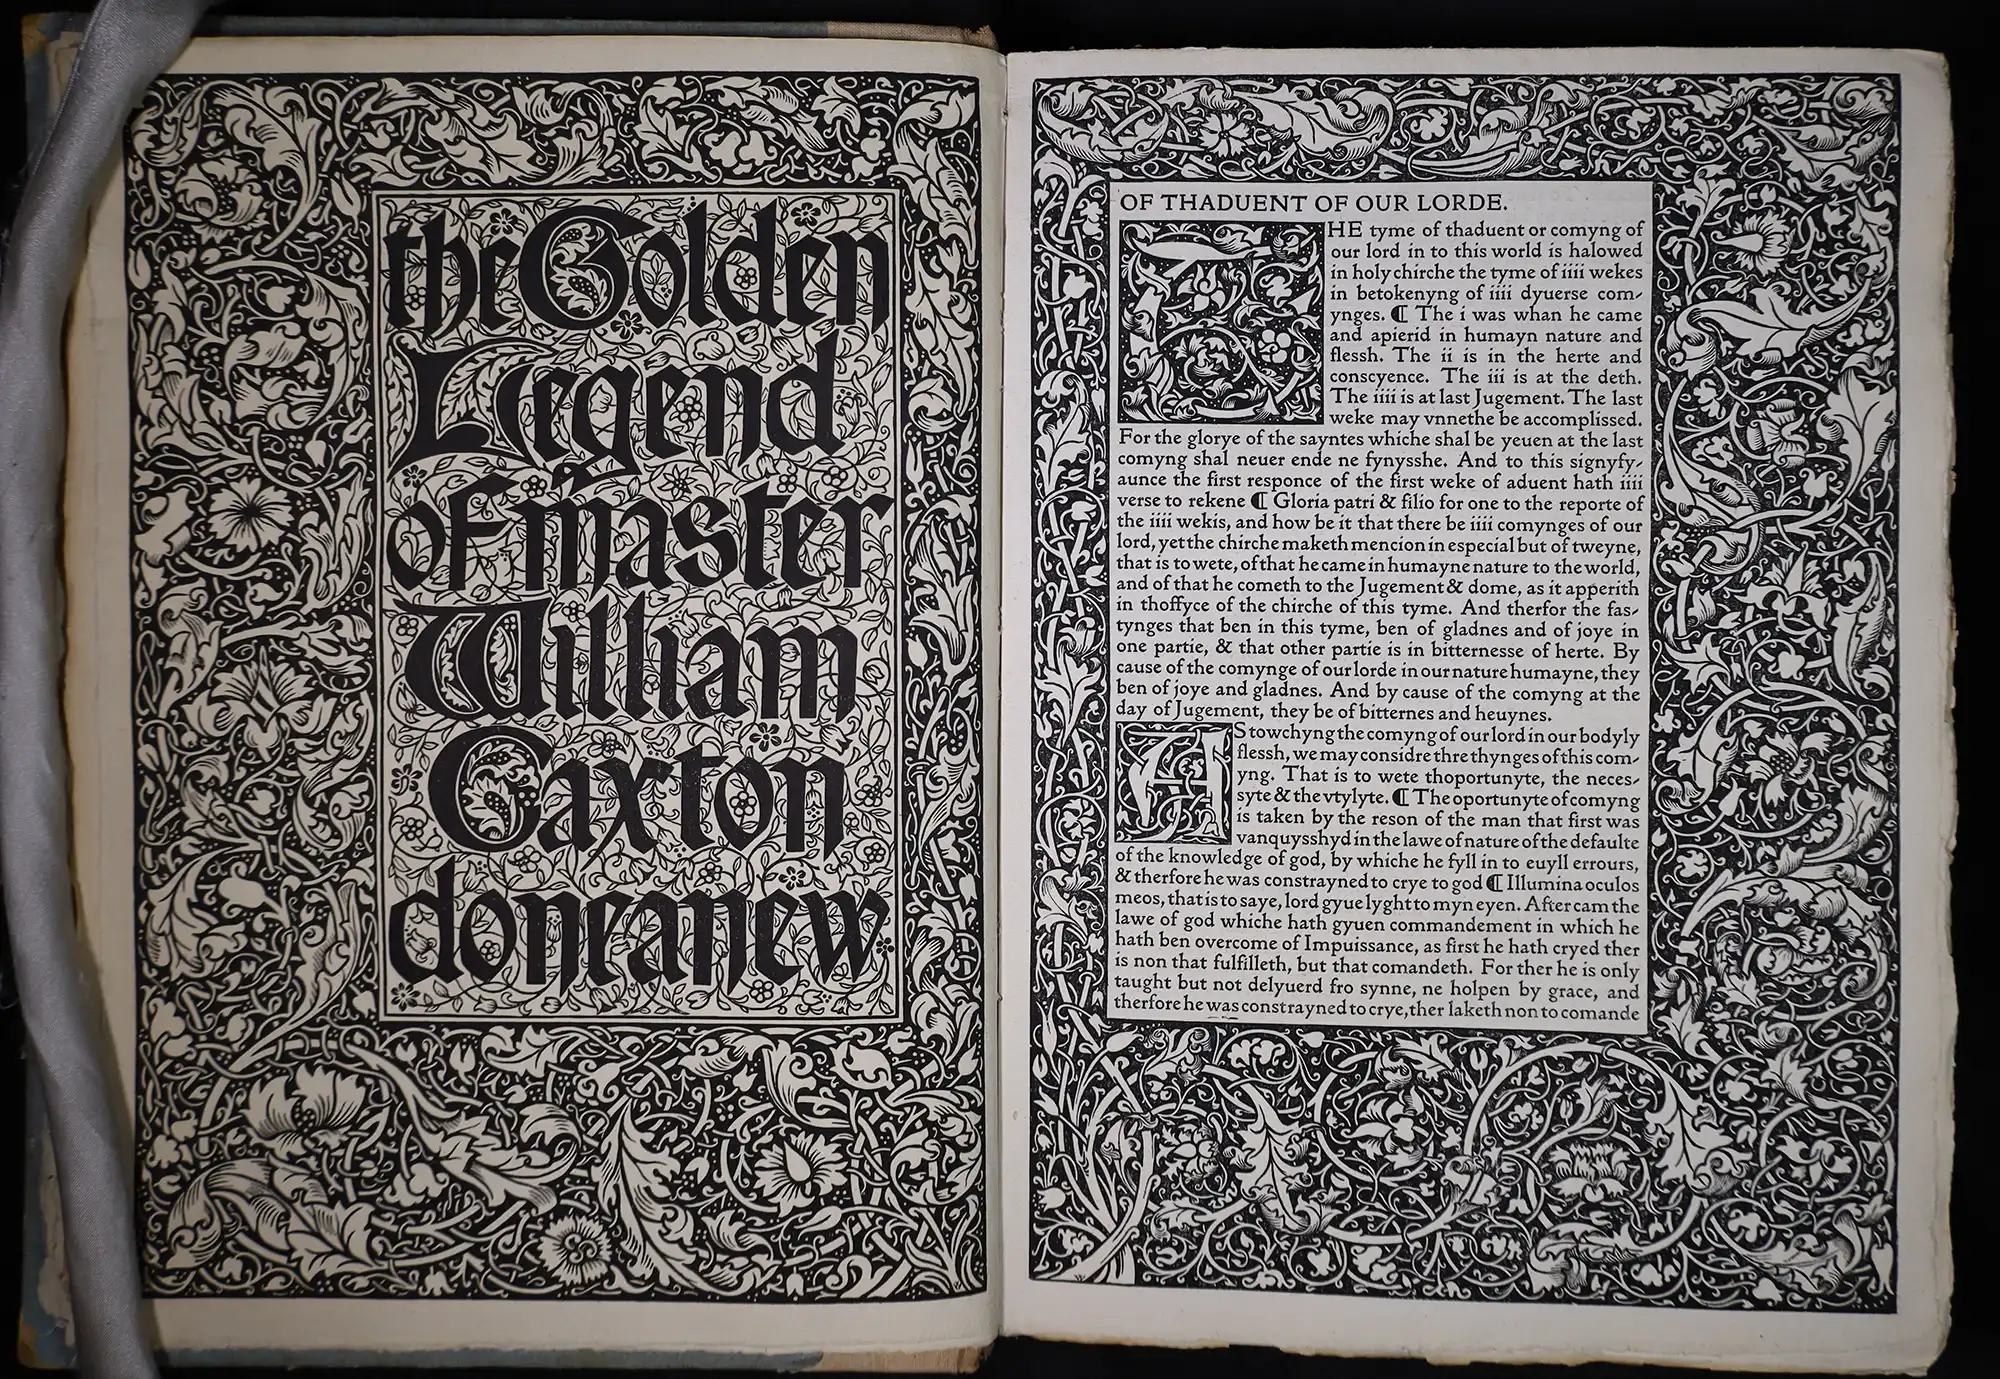 the Golden
Legend
of master
William
Caxton
done anew
OF THADUENT OF OUR LORDE.
THE tyme of thaduent or comyng of
our lord in to this world is halowed
in holy chirche the tyme of iiii wekes
in betokenyng of iiii dyuerse com-
ynges. ¶ The i was whan he came
and apierid in humayn nature and
flessh. The ii is in the herte and
conscyence. The iii is at the deth.
The iiii is at last Jugement. The last
weke may vnnethe be accomplissed.
For the glorye of the sayntes whiche shal be yeuen at the last
comyng shal neuer ende ne fynysshe. And to this signyfy-
aunce the first responce of the first weke of aduent hath iiii
verse to rekene ¶ Gloria patri & filio for one to the reporte of
the iiii wekis, and how be it that there be iiii comynges of our
lord, yet the chirche maketh mencion in especial but of tweyne,
that is to wete, of that he came in humayne nature to the world,
and of that he cometh to the Jugement & dome, as it apperith
in thoffyce of the chirche of this tyme. And therfor the fas-
tynges that ben in this tyme, ben of gladnes and of joye in
one partie, & that other partie is in bitternesse of herte. By
cause of the comynge of our lorde in our nature humayne, they
ben of joye and gladnes. And by cause of the comyng at the
day of Jugement, they be of bitternes and heuynes.
AS towchyng the comyng of our lord in our bodyly
flessh, we may considre thre thynges of this com-
yng. That is to wete thoportunyte, the neces-
syte & the vtylyte. ¶ The oportunyte of comyng
is taken by the reson of the man that first was
vanquysshyd in the lawe of nature of the defaulte
of the knowledge of god, by whiche he fyll in to euyll errours,
& therfore he was constrayned to crye to god ¶ Illumina oculos
meos, that is to saye, lord gyue lyght to myn eyen. After cam the
lawe of god whiche hath gyuen commandement in which he
hath ben overcome of Impuissance, as first he hath cryed ther
is non that fulfilleth, but that comandeth. For ther he is only
taught but not delyuerd fro synne, ne holpen by grace, and
therfore he was constrayned to crye, ther laketh non to comande